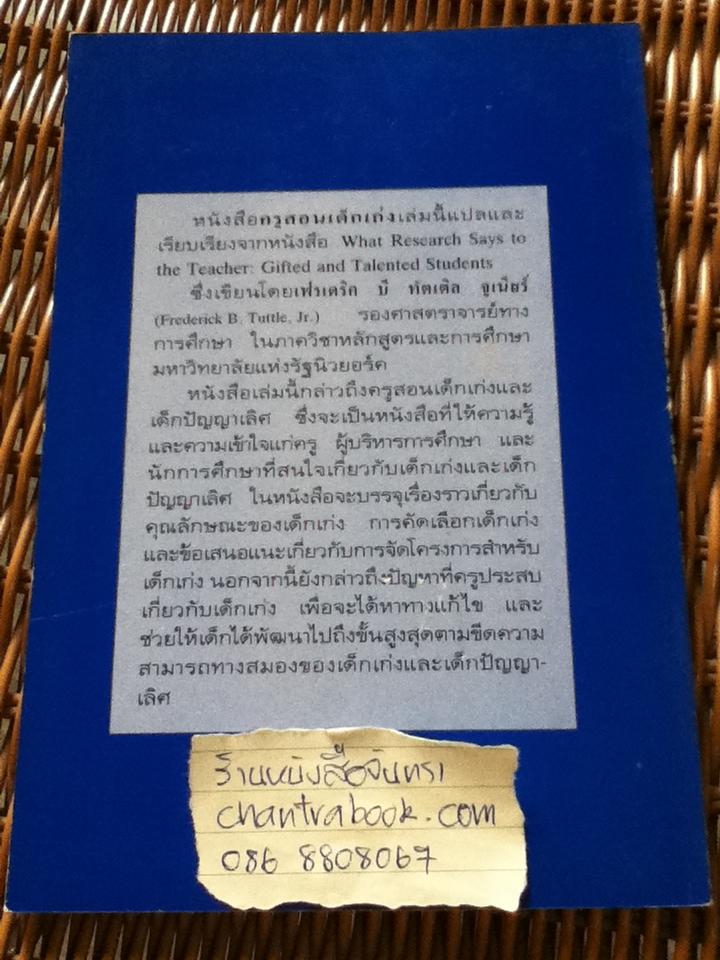 หนังสือครูสอนเด็กเก่งเล่มนี้แปลและ
เรียบเรียงจากหนังสือ What Research Says to
the Teacher: Gifted and Talented Students
ซึ่งเขียนโดยเฟรเดริค บี ทัตเติล จูเนียร์
(Frederick B. Tuttle, Jr.) รองศาสตราจารย์ทาง
การศึกษา ในภาควิชาหลักสูตรและการศึกษา
มหาวิทยาลัยแห่งรัฐนิวยอร์ค
หนังสือเล่มนี้กล่าวถึงครูสอนเด็กเก่งและ
เด็กปัญญาเลิศ ซึ่งจะเป็นหนังสือที่ให้ความรู้
และความเข้าใจแก่ครู ผู้บริหารการศึกษา และ
นักการศึกษาที่สนใจเกี่ยวกับเด็กเก่งและเด็ก
ปัญญาเลิศ ในหนังสือจะบรรจุเรื่องราวเกี่ยวกับ
คุณลักษณะของเด็กเก่ง การคัดเลือกเด็กเก่ง
และข้อเสนอแนะเกี่ยวกับการจัดโครงการสำหรับ
เด็กเก่ง นอกจากนี้ยังกล่าวถึงปัญหาที่ครูประสบ
เกี่ยวกับเด็กเก่ง เพื่อจะได้หาทางแก้ไข และ
ช่วยให้เด็กได้พัฒนาไปถึงขั้นสูงสุดตามขีดความ
สามารถทางสมองของเด็กเก่งและเด็กปัญญา-
เลิศ
ร้านหนังสือจันทรา
chantrabook.com
086 8808067